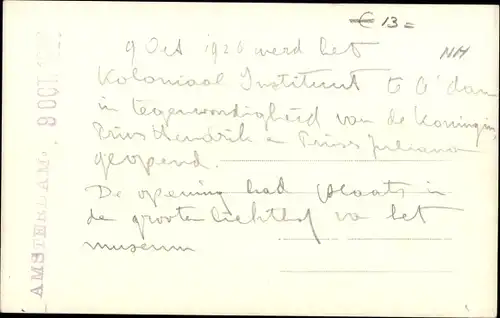 € 13 =
NH
AMSTERDAM. 9 OCT.
9 Oct 1926 werd het
Koloniaal Instituut te A'dam
in tegenwoordigheid van de Koningin,
Prins Hendrik en Prinses Juliana
geopend.
De opening had plaats in
de groote lichthof va het
museum